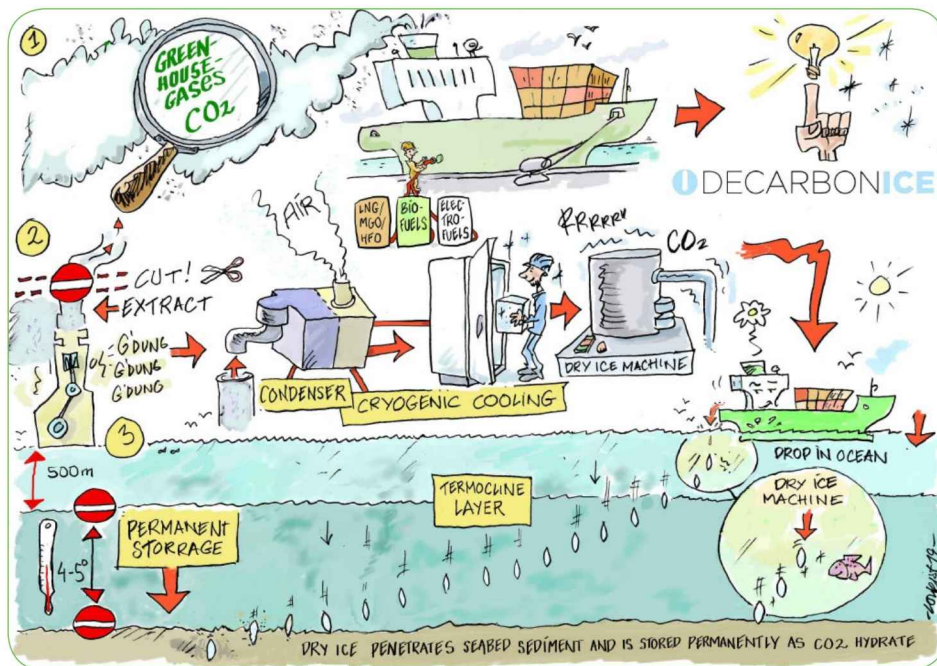 1
GREEN-
HOUSE-
GASES
CO2
DECARBONICE
LNG/
MGO/
HFO
BIO-
FUELS
ELEC
TRO-
FUELS
2
CUT!
EXTRACT
G'DUNG
G'DUNG
G'DUNG
AIR
CONDENSER
CRYOGENIC COOLING
RRRRRR
CO2
DRY ICE MACHINE
3
500m
DROP IN OCEAN
DRY ICE
MACHINE
TERMOCLINE
LAYER
PERMANENT
STORRAGE
4-5°
DRY ICE PENETRATES SEABED SEDIMENT AND IS STORED PERMANENTLY AS CO2 HYDRATE